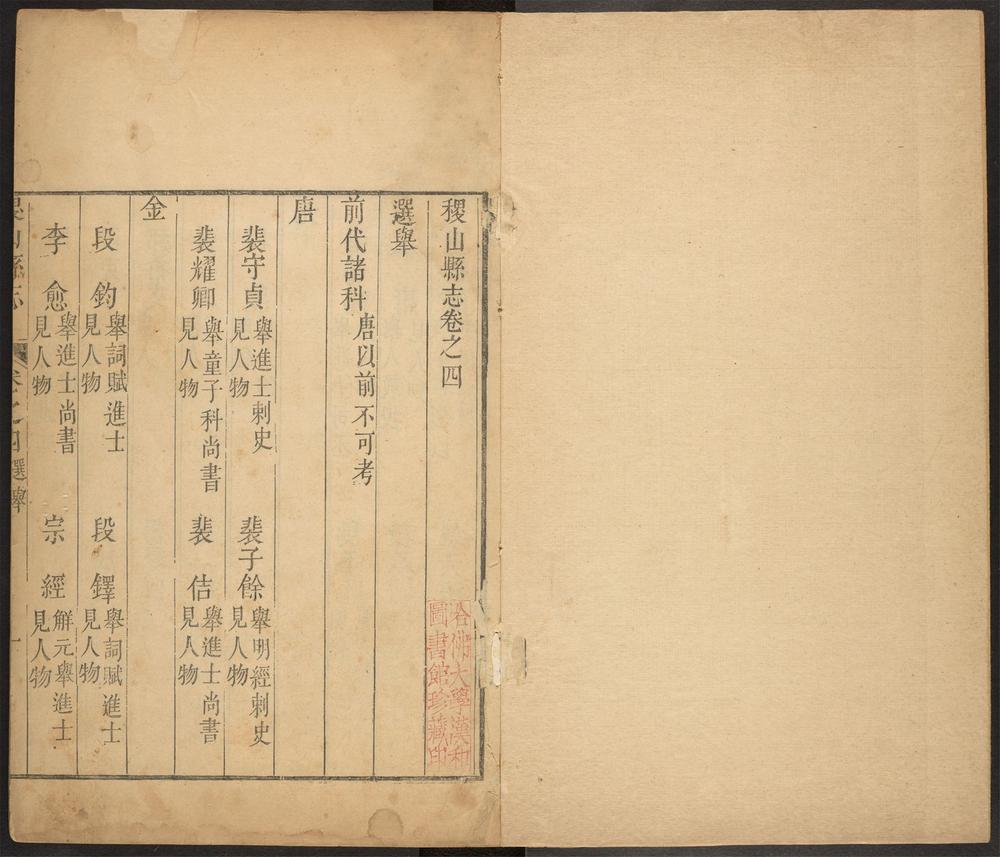 稷山縣志卷之四
選舉
前代諸科 唐以前不可考
唐
裴守貞 舉進士刺史見人物 裴子餘 舉明經刺史見人物
裴耀卿 舉童子科尚書見人物 裴佶 舉進士尚書見人物
金
段鈞 舉詞賦進士見人物 段鐸 舉詞賦進士見人物
李愈 舉進士尚書見人物 宗經 解元舉進士見人物
稷山縣志 卷之四選舉 一
哈佛大學漢和
圖書館珍藏印